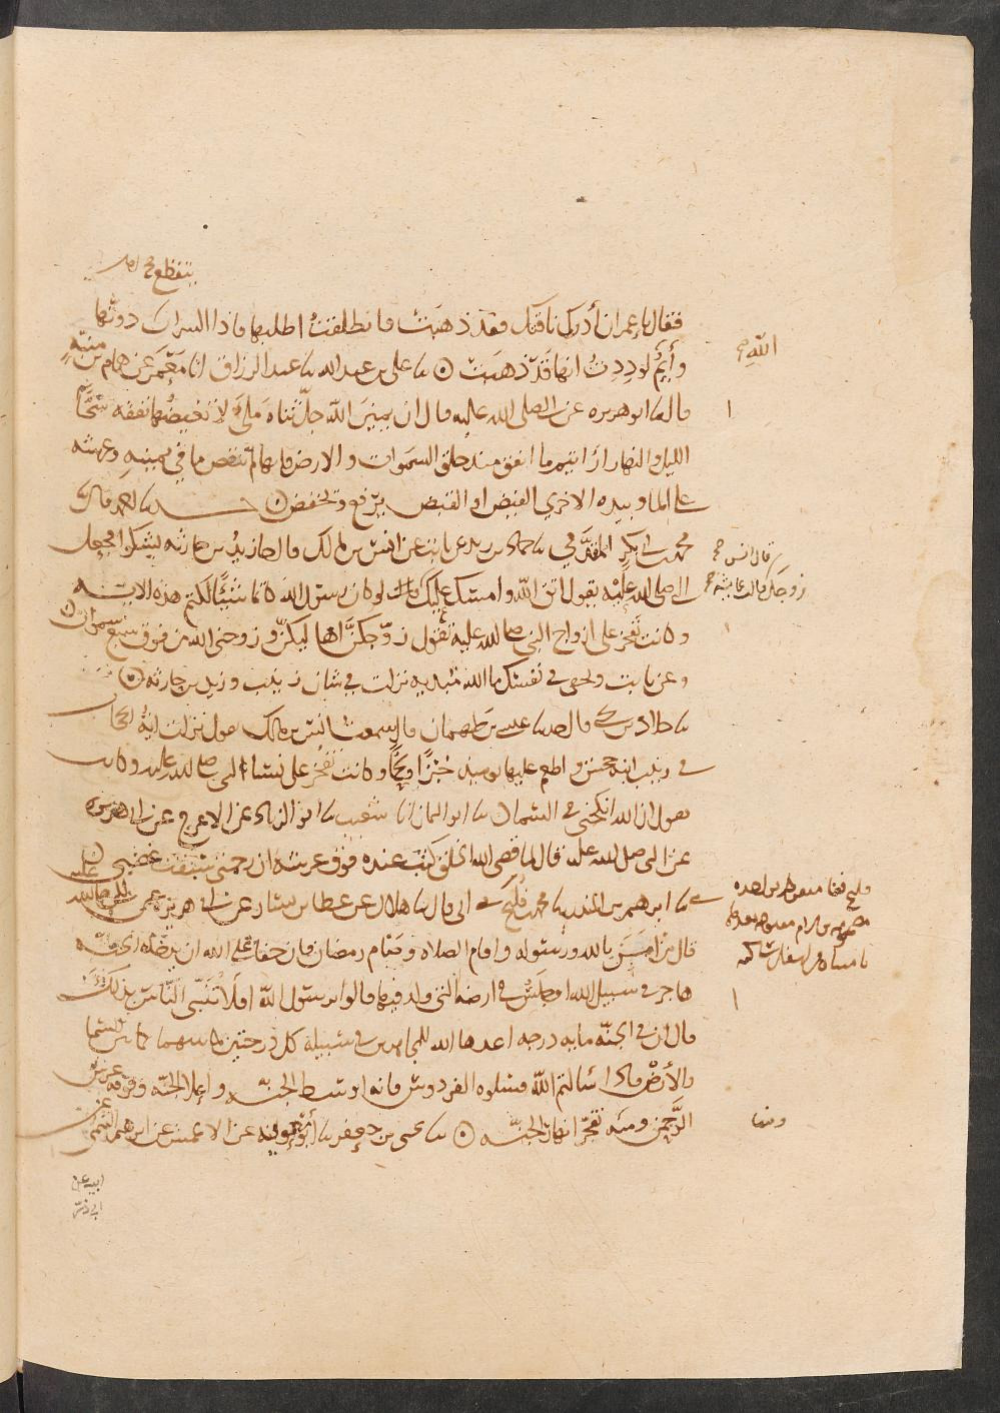 ينقطع
فقال يا عمران أدرك ناقتك فقد ذهبت فانطلقت اطلبها فاذا السراب دونها
وأيم لوددت انها قد ذهبت ۞ نا علي بن عبد الله نا عبد الرزاق انا معمر عن همام بن منبه
الله
قال نا ابو هريره عن النبي صلى الله عليه قال ان يمين الله جل ثناه ملأى لا تغيضها نفقه سحا
الليل والنهار ارايتم ما انفق منذ خلق السموات والارض فانه لم ينقص ما في يمينه وعرشه
على الما وبيده الاخرى الفيض او القبض يرفع ويخفض ۞ نا احمد قال نا
محمد بن ابي بكر المقدمي نا حماد بن زيد عن ثابت عن انس بن مالك قال جا زيد بن حارثه يشكوا فجعل
النبي صلى الله عليه يقول اتق الله وامسك عليك زوجك لو كان رسول الله كاتما شيئا لكتم هذه الايه
قال انس
زوجك قالت عايشه
وكانت تفخر على ازواج النبي صلى الله عليه تقول زوجكن اهاليكن وزوجني الله من فوق سبع سموات ۞
وعن ثابت وتخفي في نفسك ما الله مبديه نزلت في شان زينب وزيد بن حارثه ۞
نا خلاد بن يحيى قال حدثنا عيسى بن طهمان قال سمعت انس بن مالك يقول نزلت اية الحجاب
في زينب ابنه جحش واطعم عليها يوميذ خبزا ولحما وكانت تفخر على نساء النبي صلى الله عليه وكانت
تقول ان الله انكحني في السما ۞ نا ابو اليمان انا شعيب نا ابو الزناد عن الاعرج عن ابي هريره
عن النبي صلى الله عليه قال لما قضى الله الخلق كتب عنده فوق عرشه ان رحمتي سبقت غضبي ۞
نا ابرهيم بن المنذر نا محمد بن فليح نا ابي قال نا هلال عن عطا بن يسار عن ابي هريره عن النبي صلى الله عليه
قال من امن بالله ورسوله واقام الصلاه وصام رمضان كان حقا على الله ان يدخله الجنه
هاجر في سبيل الله او جلس في ارضه التي ولد فيها قالوا يرسول الله افلا ننبي الناس بذلك
قال ان في الجنه مايه درجه اعدها الله للمجاهدين في سبيله كل درجتين ما بينهما كما بين السما
والارض فاذا سالتم الله فسلوه الفردوس فانه اوسط الجنه واعلا الجنه وفوقه عرش
الرحمن ومنه تفجر انهار الجنه ۞ نا يحيى بن جعفر نا أبو معويه عن الاعمش عن ابرهيم التيمي عن
ومنها
ابيه عن
ابي ذر